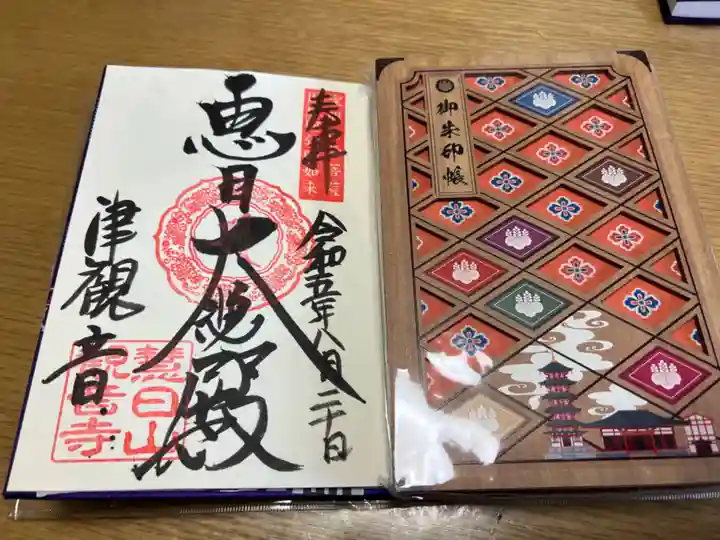 奉拝
令和五年八月二十日
恵日大悲殿
津観音
慧日山
観音寺
如来
御朱印帳